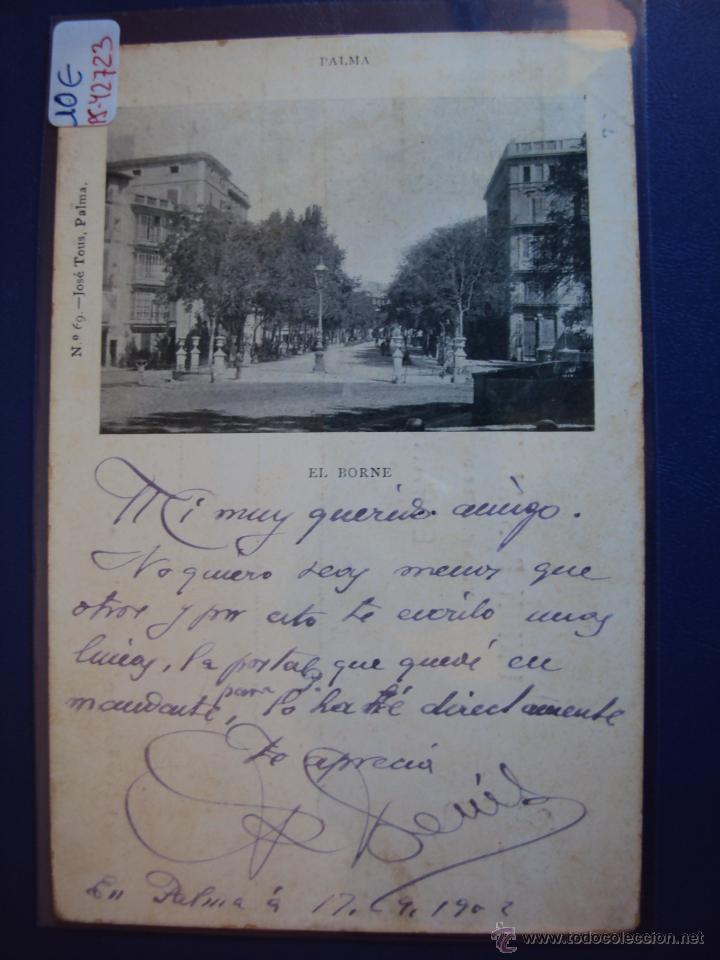 10€
PS-42723
PALMA
N.º 69.—José Tous, Palma.
EL BORNE
Mi muy querido amigo.
No quiero ser menos que
otros y por esto te escribo unas
lineas, la postal que quedé en
mandarte, para lo haré directamente
Te aprecia
En Palma á 17. 9. 1902
www.todocoleccion.net